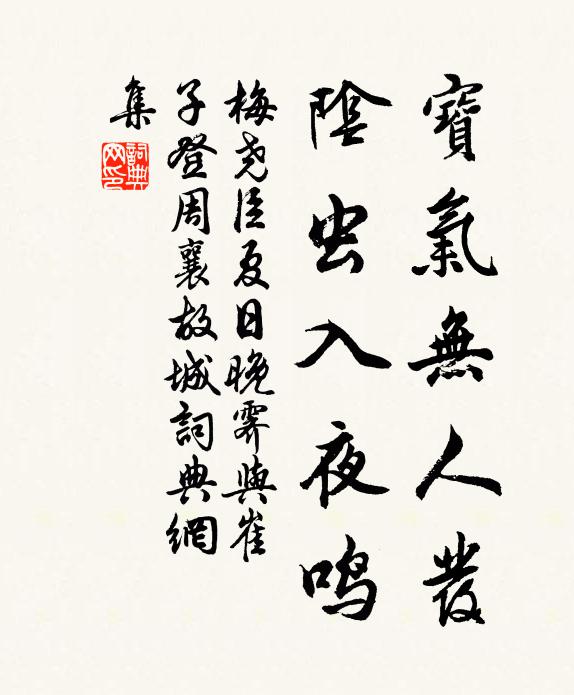 寶氣無人發
陰虫入夜鳴
梅尧臣夏日晚霽與崔
子登周襄故城詞典網
集
詞典
网印